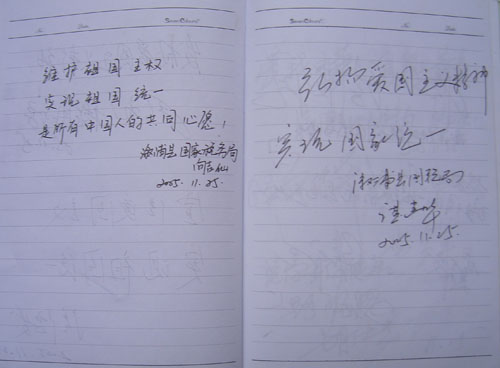 维护祖国主权
实现祖国统一
是所有中国人的共同心愿,
溆浦县国家税务局
2005.11.25.
弘扬爱国主义精神
实现国家统一
溆浦县国税局
2005.11.25.